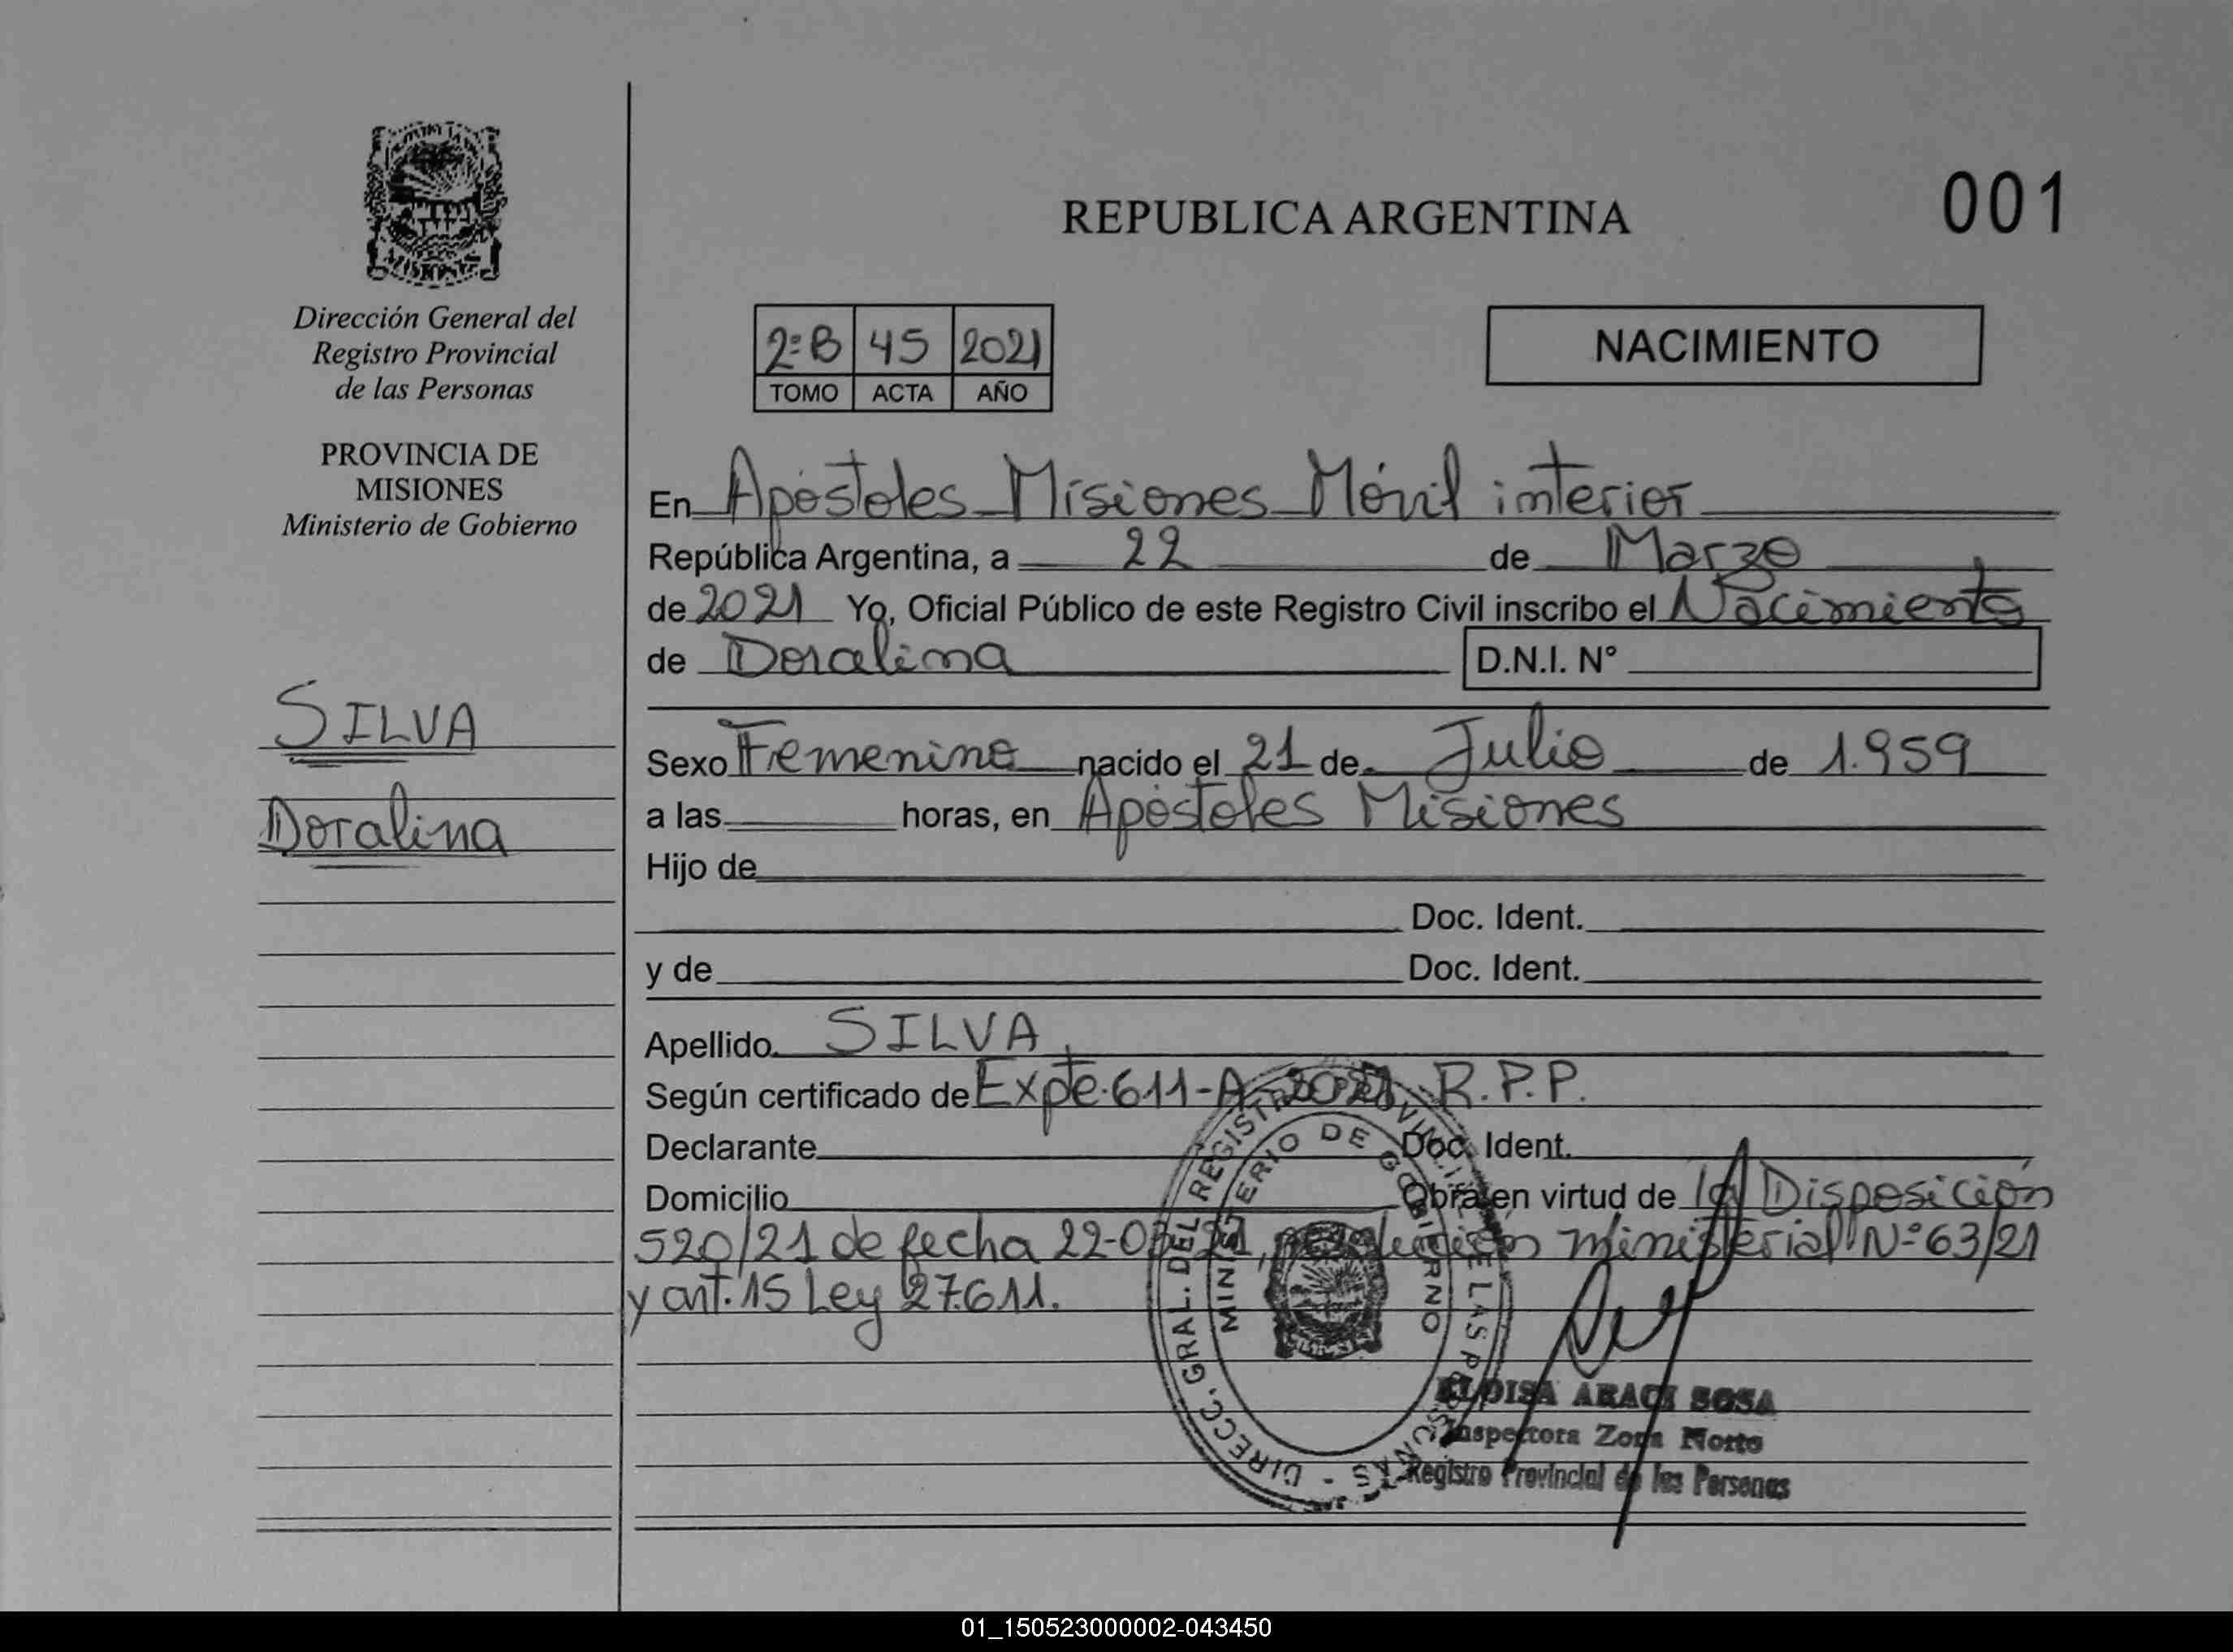 001
REPUBLICA ARGENTINA
Dirección General del
Registro Provincial
de las Personas
PROVINCIA DE
MISIONES
Ministerio de Gobierno
2ºB 45 2021
TOMO ACTA AÑO
NACIMIENTO
En Apóstoles Misiones Móvil interior
República Argentina, a 22 de Marzo
de 2021 Yo, Oficial Público de este Registro Civil inscribo el Nacimiento
de Doralina D.N.I. N°
SILVA
Doralina
Sexo Femenino nacido el 21 de Julio de 1.959
a las horas, en Apóstoles Misiones
Hijo de
Doc. Ident.
y de Doc. Ident.
Apellido SILVA
Según certificado de Expte. 611-A-2021 R.P.P.
Declarante Doc. Ident.
Domicilio Obra en virtud de la Disposición
520/21 de fecha 22-03-21, resolución ministerial Nº 63/21
y art. 15 Ley 27.611.
DIRECC. GRAL. DEL REGISTRO PROVINCIAL DE LAS PERSONAS
MINISTERIO DE GOBIERNO
ELOISA ARACI SOSA
Inspectora Zona Norte
Registro Provincial de las Personas
01_150523000002-043450